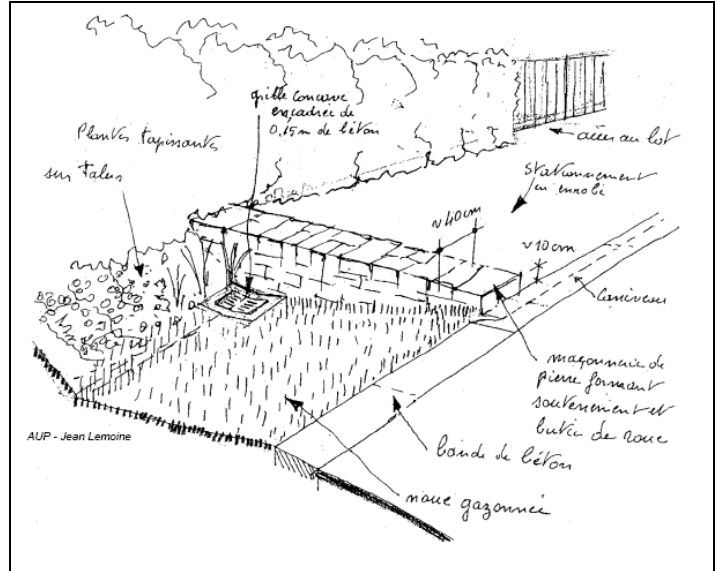 grille concave
encadrée de
0,15 m de béton
Plantes tapissantes
sur talus
accès au lot
stationnement
en enrobé
~40cm
~10cm
Caniveau
maçonnerie de
pierre formant
soutènement et
butée de roue
bande de béton
noue gazonnée
AUP - Jean Lemoine